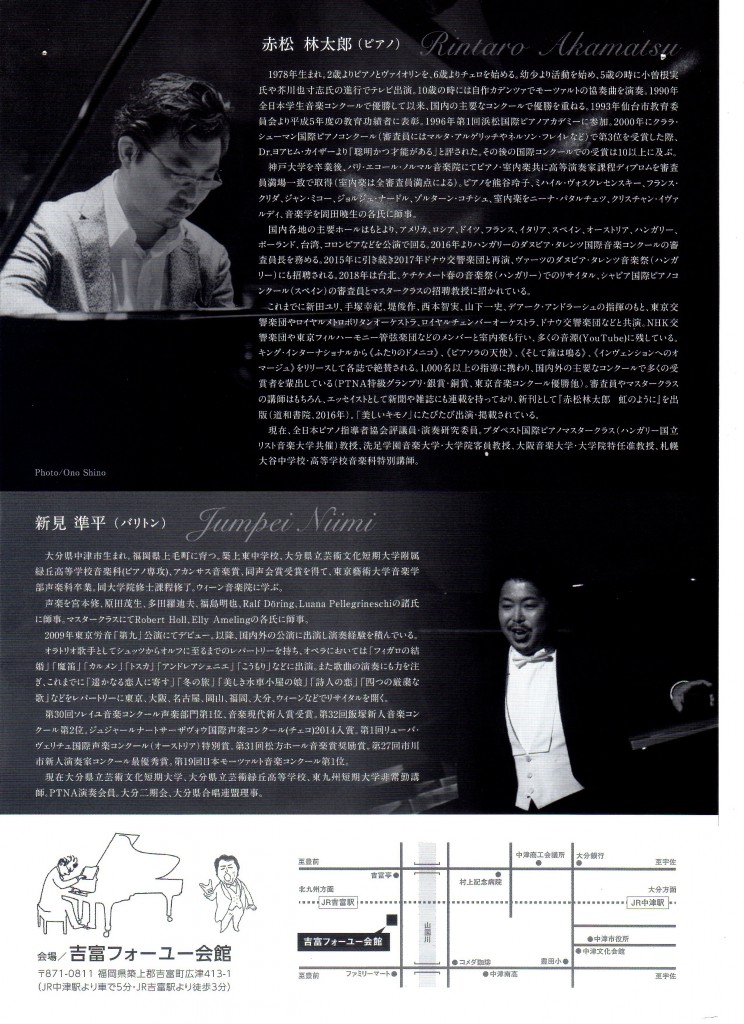 赤松 林太郎（ピアノ） Rintaro Akamatsu
1978年生まれ。2歳よりピアノとヴァイオリンを、6歳よりチェロを始める。幼少より活動を始め、5歳の時に小曽根実
氏や芥川也寸志氏の進行でテレビ出演。10歳の時には自作カデンツァでモーツァルトの協奏曲を演奏。1990年
全日本学生音楽コンクールで優勝して以来、国内の主要なコンクールで優勝を重ねる。1993年仙台市教育委
員会より平成5年度の教育功績者に表彰。1996年第1回浜松国際ピアノアカデミーに参加。2000年にクララ・
シューマン国際ピアノコンクール（審査員にはマルタ・アルゲリッチやネルソン・フレイレなど）で第3位を受賞した際、
Dr.ヨアヒム・カイザーより「聡明かつ才能がある」と評された。その後の国際コンクールでの受賞は10以上に及ぶ。
神戸大学を卒業後、パリ・エコール・ノルマル音楽院にてピアノ・室内楽共に高等演奏家課程ディプロムを審査
員満場一致で取得（室内楽は全審査員満点による）。ピアノを熊谷玲子、ミハイル・ヴォスクレセンスキー、フランス・
クリダ、ジャン・ミコー、ジョルジュ・ナードル、ゾルターン・コチシュ、室内楽をニーナ・パタルチェツ、クリスチャン・イヴァ
ルディ、音楽学を岡田暁生の各氏に師事。
国内各地の主要ホールはもとより、アメリカ、ロシア、ドイツ、フランス、イタリア、スペイン、オーストリア、ハンガリー、
ポーランド、台湾、コロンビアなどを公演で回る。2016年よりハンガリーのダヌビア・タレンツ国際音楽コンクールの審
査員長を務める。2015年に引き続き2017年ドナウ交響楽団と再演、ヴァーツのダヌビア・タレンツ音楽祭（ハンガ
リー）にも招聘される。2018年は台北、ケチケメート春の音楽祭（ハンガリー）でのリサイタル、シャビア国際ピアノコ
ンクール（スペイン）の審査員とマスタークラスの招聘教授に招かれている。
これまでに新田ユリ、手塚幸紀、堤俊作、西本智実、山下一史、デアーク・アンドラーシュの指揮のもと、東京交
響楽団やロイヤルメトロポリタンオーケストラ、ロイヤルチェンバーオーケストラ、ドナウ交響楽団などと共演。NHK交
響楽団や東京フィルハーモニー管弦楽団などのメンバーと室内楽も行い、多くの音源(YouTube)に残している。
キング・インターナショナルから《ふたりのドメニコ》、《ピアソラの天使》、《そして鐘は鳴る》、《インヴェンションへのオ
マージュ》をリリースして各誌で絶賛される。1,000名以上の指導に携わり、国内外の主要なコンクールで多くの受
賞者を輩出している（PTNA特級グランプリ・銀賞・銅賞、東京音楽コンクール優勝他）。審査員やマスタークラス
の講師はもちろん、エッセイストとして新聞や雑誌にも連載を持っており、新刊として『赤松林太郎 虹のように』を出
版（道和書院、2016年）。『美しいキモノ』にたびたび出演・掲載されている。
現在、全日本ピアノ指導者協会評議員・演奏研究委員。ブダペスト国際ピアノマスタークラス（ハンガリー国立
リスト音楽大学共催）教授、洗足学園音楽大学・大学院客員教授、大阪音楽大学・大学院特任准教授、札幌
大谷中学校・高等学校音楽科特別講師。
Photo/Ono Shino
新見 準平（バリトン） Jumpei Niimi
大分県中津市生まれ。福岡県上毛町に育つ。築上東中学校、大分県立芸術文化短期大学附属
緑丘高等学校音楽科(ピアノ専攻)。アカンサス音楽賞、同声会賞受賞を得て、東京藝術大学音楽学
部声楽科卒業。同大学院修士課程修了。ウィーン音楽院に学ぶ。
声楽を宮本修、原田茂生、多田羅迪夫、福島明也、Ralf Döring、Luana Pellegrineschiの諸氏
に師事。マスタークラスにてRobert Holl、Elly Amelingの各氏に師事。
2009年東京労音「第九」公演にてデビュー。以降、国内外の公演に出演し演奏経験を積んでいる。
オラトリオ歌手としてシュッツからオルフに至るまでのレパートリーを持ち、オペラにおいては「フィガロの結
婚」「魔笛」「カルメン」「トスカ」「アンドレアシェニエ」「こうもり」などに出演。また歌曲の演奏にも力を注
ぎ、これまでに「遥かなる恋人に寄す」「冬の旅」「美しき水車小屋の娘」「詩人の恋」「四つの厳粛な
歌」などをレパートリーに東京、大阪、名古屋、岡山、福岡、大分、ウィーンなどでリサイタルを開く。
第30回ソレイユ音楽コンクール声楽部門第1位、音楽現代新人賞受賞。第32回飯塚新人音楽コン
クール第2位。ジュジャールナートサーザヴォウ国際声楽コンクール(チェコ)2014入賞。第1回リューバ・
ヴェリチェ国際声楽コンクール（オーストリア）特別賞。第31回松方ホール音楽賞奨励賞。第27回市川
市新人演奏家コンクール最優秀賞。第19回日本モーツァルト音楽コンクール第1位。
現在大分県立芸術文化短期大学、大分県立芸術緑丘高等学校、東九州短期大学非常勤講
師。PTNA演奏会員。大分二期会、大分県合唱連盟理事。
会場／吉富フォーユー会館
〒871-0811 福岡県築上郡吉富町広津413-1
（JR中津駅より車で5分・JR吉富駅より徒歩3分）
至豊前
中津商工会議所
大分銀行
至宇佐
吉富亭
村上記念病院
北九州方面
JR吉富駅
大分方面
JR中津駅
吉富フォーユー会館
山国川
中津市役所
中津文化会館
至豊前
ファミリーマート
コメダ珈琲
中津南高
豊田小
至宇佐